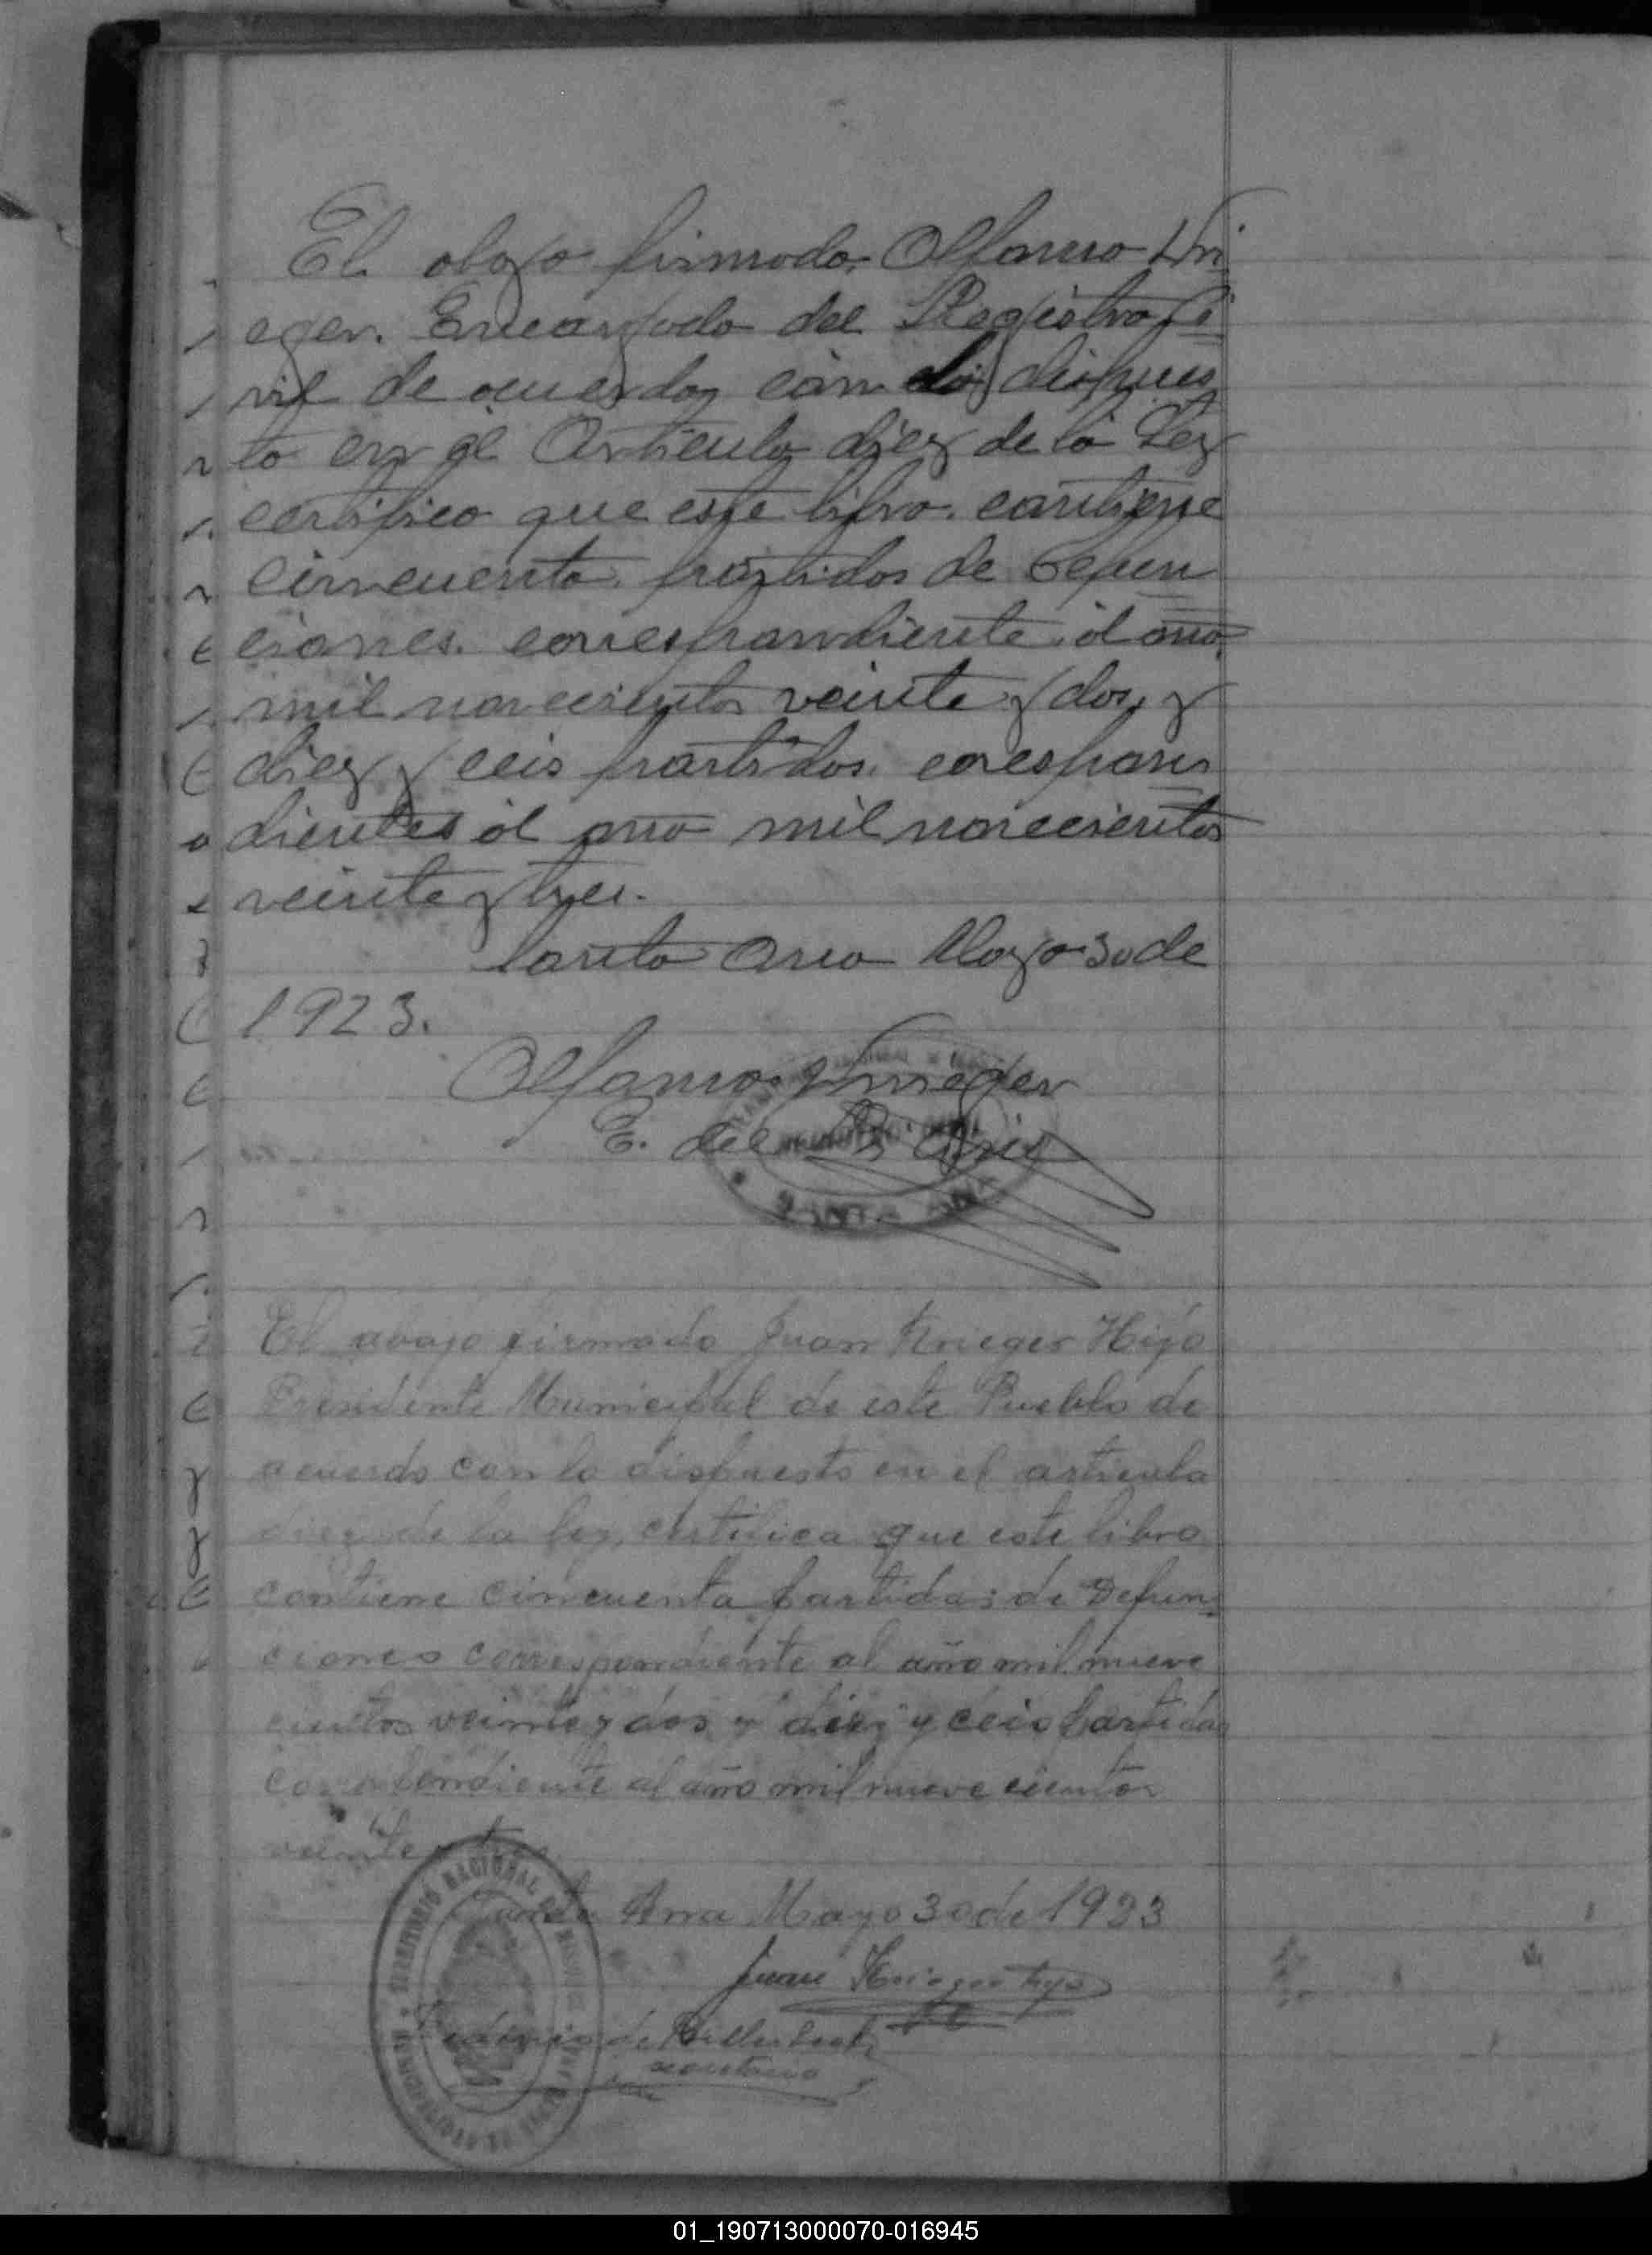 El abajo firmado, Alfonso Kri
eger. Encargado del Registro Ci
vil de acuerdo con lo dispues
to en el Articulo diez de la Ley
certifico que este libro. contiene
cincuenta. partidas de Defun
ciones. correspondiente. al año.
mil novecientos veinte y dos, y
diez y ceis partidas. corespon
dientes al año mil novecientos
veinte y tres.
Santa Ana Mayo 30 de
1923.
Alfonso Krieger
E. del R. Civil
REGISTRO CIVIL
SANTA ANA
El avajo firmado Juan Krieger Hijo
Presidente Municipal de este Pueblo de
acuerdo con lo dispuesto en el articulo
diez de la ley, certifica que este libro
contiene cincuenta partidas de Defun
ciones correspondiente al año mil nueve
cientos veinte y dos y diez y ceis partidas
correspondiente al año mil nueve cientos
veinte y tres
Santa Ana Mayo 30 de 1923
Juan Krieger hijo
Federico de
secretario
TERRITORIO NACIONAL DE MISIONES
MUNICIPALIDAD DE SANTA ANA
01_190713000070-016945